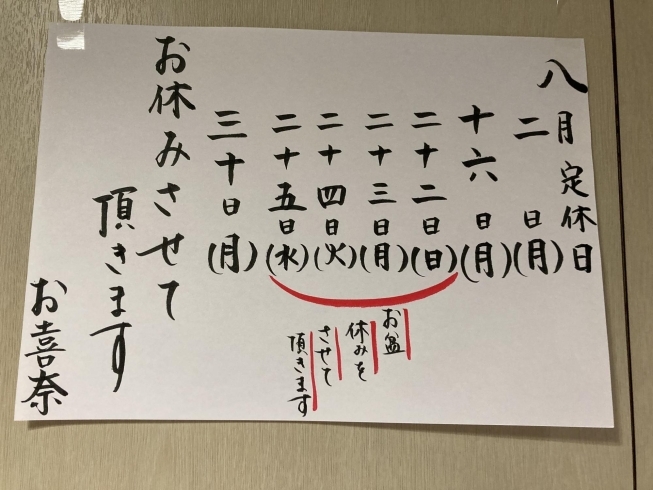 八月定休日
二日(月)
十六日(月)
二十二日(日)
二十三日(月)
二十四日(火)
二十五日(水)
お盆
休みを
させて
頂きます
三十日(月)
お休みさせて
頂きます
お喜奈